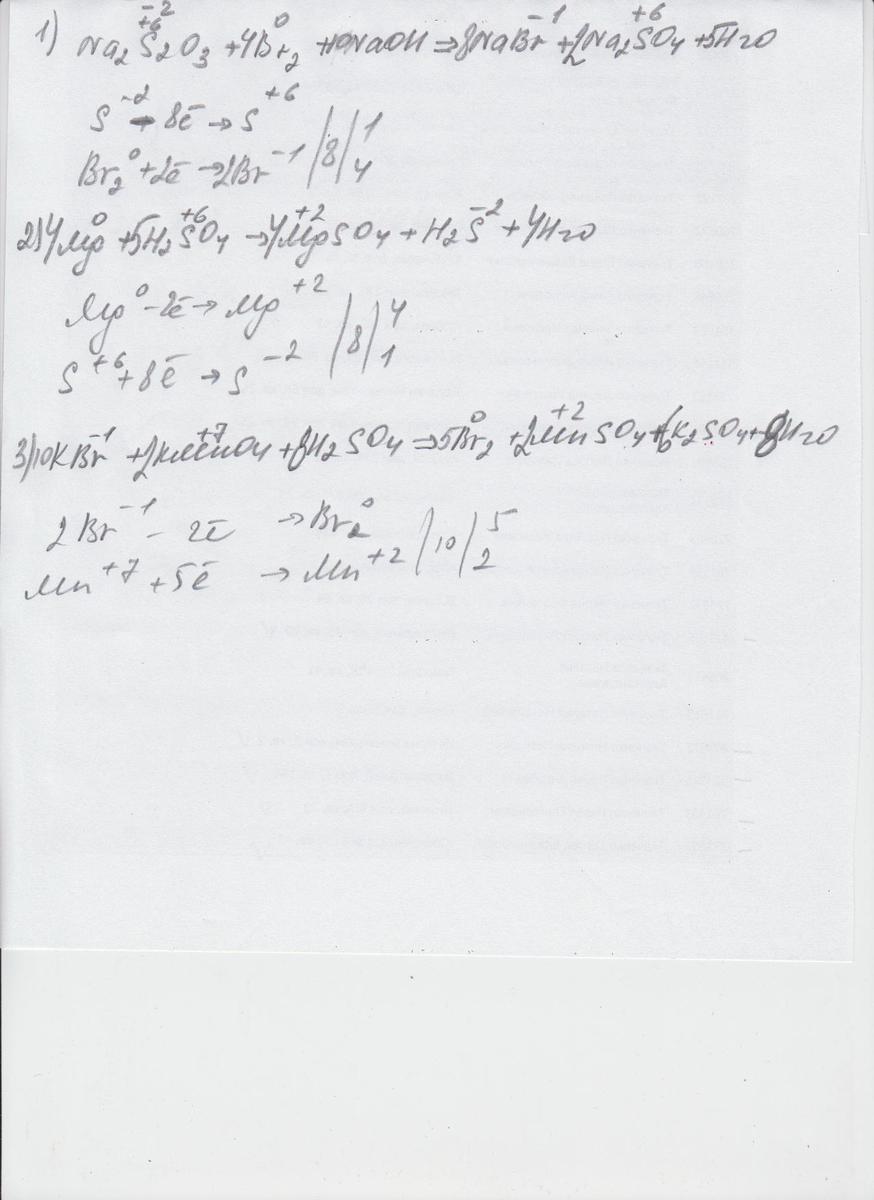 1) Na2S2O3 + 4Br2 + 10NaOH → 8NaBr + 2Na2SO4 + 5H2O
-2 +6 0 -1 +6
S⁻² - 8ē → S⁺⁶ | 8 | 1
Br2⁰ + 2ē → 2Br⁻¹ | 4
2) 4Mg⁰ + 5H2S⁺⁶O4 → 4Mg⁺²SO4 + H2S⁻² + 4H2O
Mg⁰ - 2ē → Mg⁺² | 8 | 4
S⁺⁶ + 8ē → S⁻² | 1
3) 10KBr⁻¹ + 2KMn⁺⁷O4 + 8H2SO4 → 5Br2⁰ + 2Mn⁺²SO4 + 6K2SO4 + 8H2O
2Br⁻¹ - 2ē → Br2⁰ | 10 | 5
Mn⁺⁷ + 5ē → Mn⁺² | 2